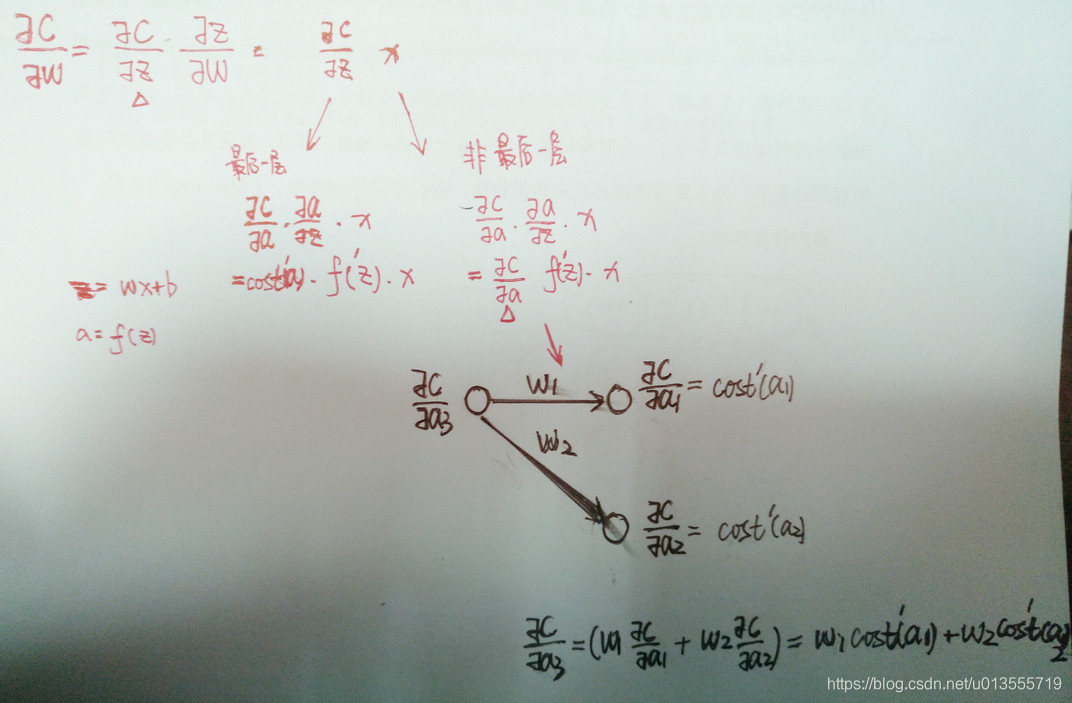 ∂C/∂W = ∂C/∂z · ∂z/∂W = ∂C/∂z x
Δ
最后一层
非最后一层
∂C/∂a · ∂a/∂z · x
∂C/∂a · ∂a/∂z · x
= cost'(a) · f'(z) · x
= ∂C/∂a f'(z) · x
Δ
z = wx+b
a = f(z)
∂C/∂a3
w1
∂C/∂a1 = cost'(a1)
w2
∂C/∂a2 = cost'(a2)
∂C/∂a3 = (w1 ∂C/∂a1 + w2 ∂C/∂a2) = w1 cost'(a1) + w2 cost'(a2)
https://blog.csdn.net/u013555719